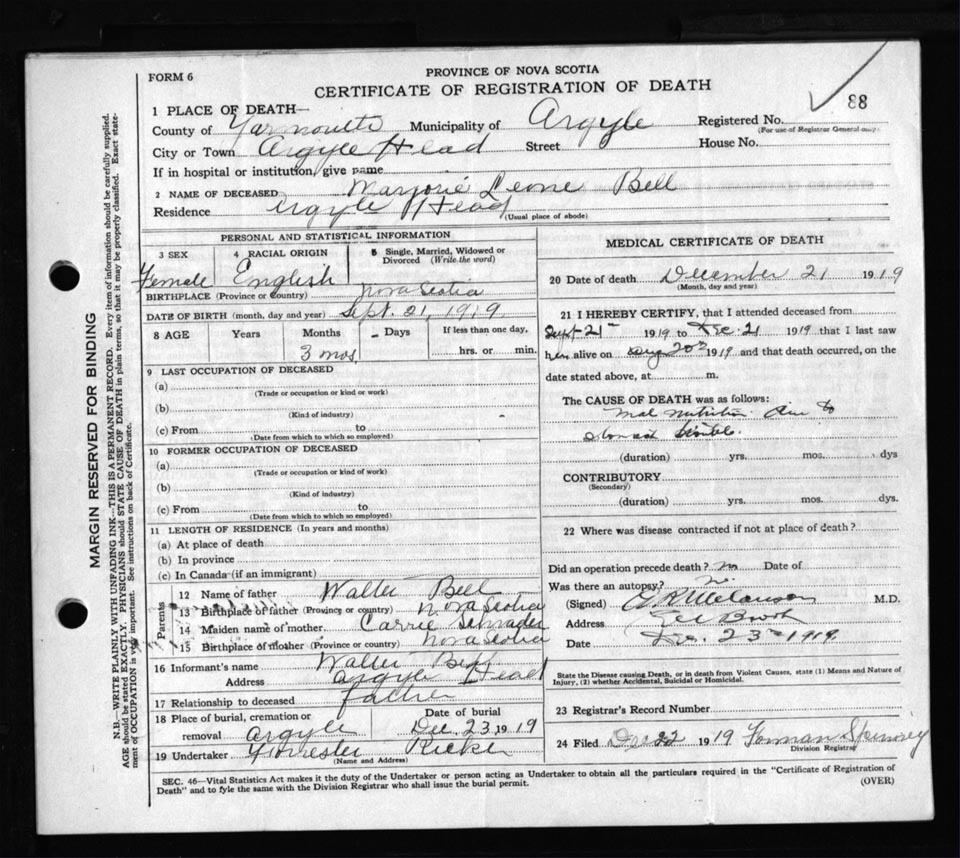 FORM 6
PROVINCE OF NOVA SCOTIA
CERTIFICATE OF REGISTRATION OF DEATH
88
1 PLACE OF DEATH—
County of Yarmouth Municipality of Argyle Registered No.
(For use of Registrar General only)
City or Town Argyle Head Street House No.
If in hospital or institution, give name
2 NAME OF DECEASED Marjorie Leone Bell
Residence Argyle Head
(Usual place of abode)
PERSONAL AND STATISTICAL INFORMATION
3 SEX 4 RACIAL ORIGIN 5 Single, Married, Widowed or Divorced (Write the word)
Female English
BIRTHPLACE (Province or Country) Nova Scotia
DATE OF BIRTH (month, day and year) Sept. 21, 1919
8 AGE Years Months Days If less than one day.
3 mos - hrs. or min.
9 LAST OCCUPATION OF DECEASED
(a)
(Trade or occupation or kind or work)
(b)
(Kind of industry)
(c) From to
(Date from which to which so employed)
10 FORMER OCCUPATION OF DECEASED
(a)
(Trade or occupation or kind of work)
(b)
(Kind of industry)
(c) From to
(Date from which to which so employed)
11 LENGTH OF RESIDENCE (In years and months)
(a) At place of death
(b) In province
(c) In Canada (if an immigrant)
Parents
12 Name of father Walter Bell
13 Birthplace of father (Province or country) Nova Scotia
14 Maiden name of mother Carrie Schrader
15 Birthplace of mother (Province or country) Nova Scotia
16 Informant's name Walter Bell
Address Argyle Head
17 Relationship to deceased father
18 Place of burial, cremation or removal Argyle
Date of burial Dec. 23, 1919
19 Undertaker Forrester Ricker
(Name and Address)
MEDICAL CERTIFICATE OF DEATH
20 Date of death December 21 1919
(Month, day and year)
21 I HEREBY CERTIFY, that I attended deceased from
Sept 21st 1919 to Dec. 21 1919 that I last saw
her alive on 20 1919 and that death occurred, on the
date stated above, at m.
The CAUSE OF DEATH was as follows:
Mal nutrition due to
stomach trouble.
(duration) yrs. mos. dys
CONTRIBUTORY
(Secondary)
(duration) yrs. mos. dys.
22 Where was disease contracted if not at place of death?
Did an operation precede death? no Date of
Was there an autopsy? no.
(Signed) Melanson M.D.
Address Eel Brook
Date Dec. 23rd 1919
State the Disease causing Death, or in death from Violent Causes, state (1) Means and Nature of
Injury, (2) whether Accidental, Suicidal or Homicidal.
23 Registrar's Record Number
24 Filed Dec 22 1919 Forman Spinney
Division Registrar
SEC. 46—Vital Statistics Act makes it the duty of the Undertaker or person acting as Undertaker to obtain all the particulars required in the "Certificate of Registration of
Death" and to fyle the same with the Division Registrar who shall issue the burial permit.
(OVER)
MARGIN RESERVED FOR BINDING
N.B.—WRITE PLAINLY WITH UNFADING INK—THIS IS A PERMANENT RECORD. Every item of information should be carefully supplied.
AGE should be stated EXACTLY. PHYSICIANS should STATE CAUSE OF DEATH in plain terms, so that it may be properly classified. Exact state-
ment of OCCUPATION is very important. See instructions on back of Certificate.